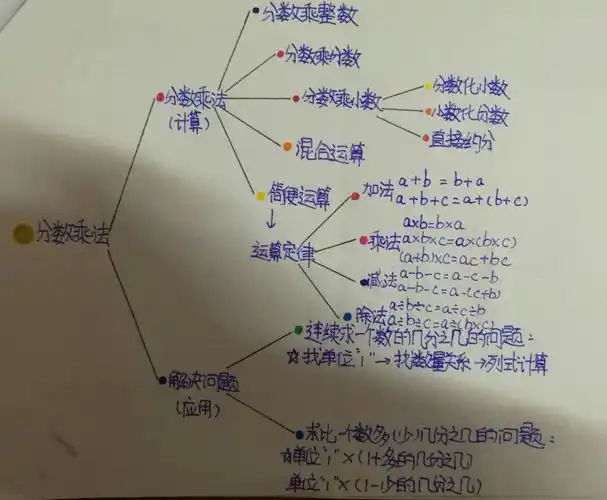 分数乘整数
分数乘分数
分数乘法
(计算)
分数乘小数
分数化小数
小数化分数
直接约分
混合运算
简便运算
↓
运算定律
加法 a+b=b+a
a+b+c=a+(b+c)
a×b=b×a
乘法 a×b×c=a×(b×c)
(a+b)×c=ac+bc
减法 a-b-c=a-c-b
a-b-c=a-(c+b)
除法 a÷b÷c=a÷c÷b
a÷b÷c=a÷(b×c)
分数乘法
连续求一个数的几分之几的问题:
☆找单位"1"→找数量关系→列式计算
解决问题
(应用)
求比一个数多(少)几分之几的问题:
☆单位"1"×(1+多的几分之几)
单位"1"×(1-少的几分之几)